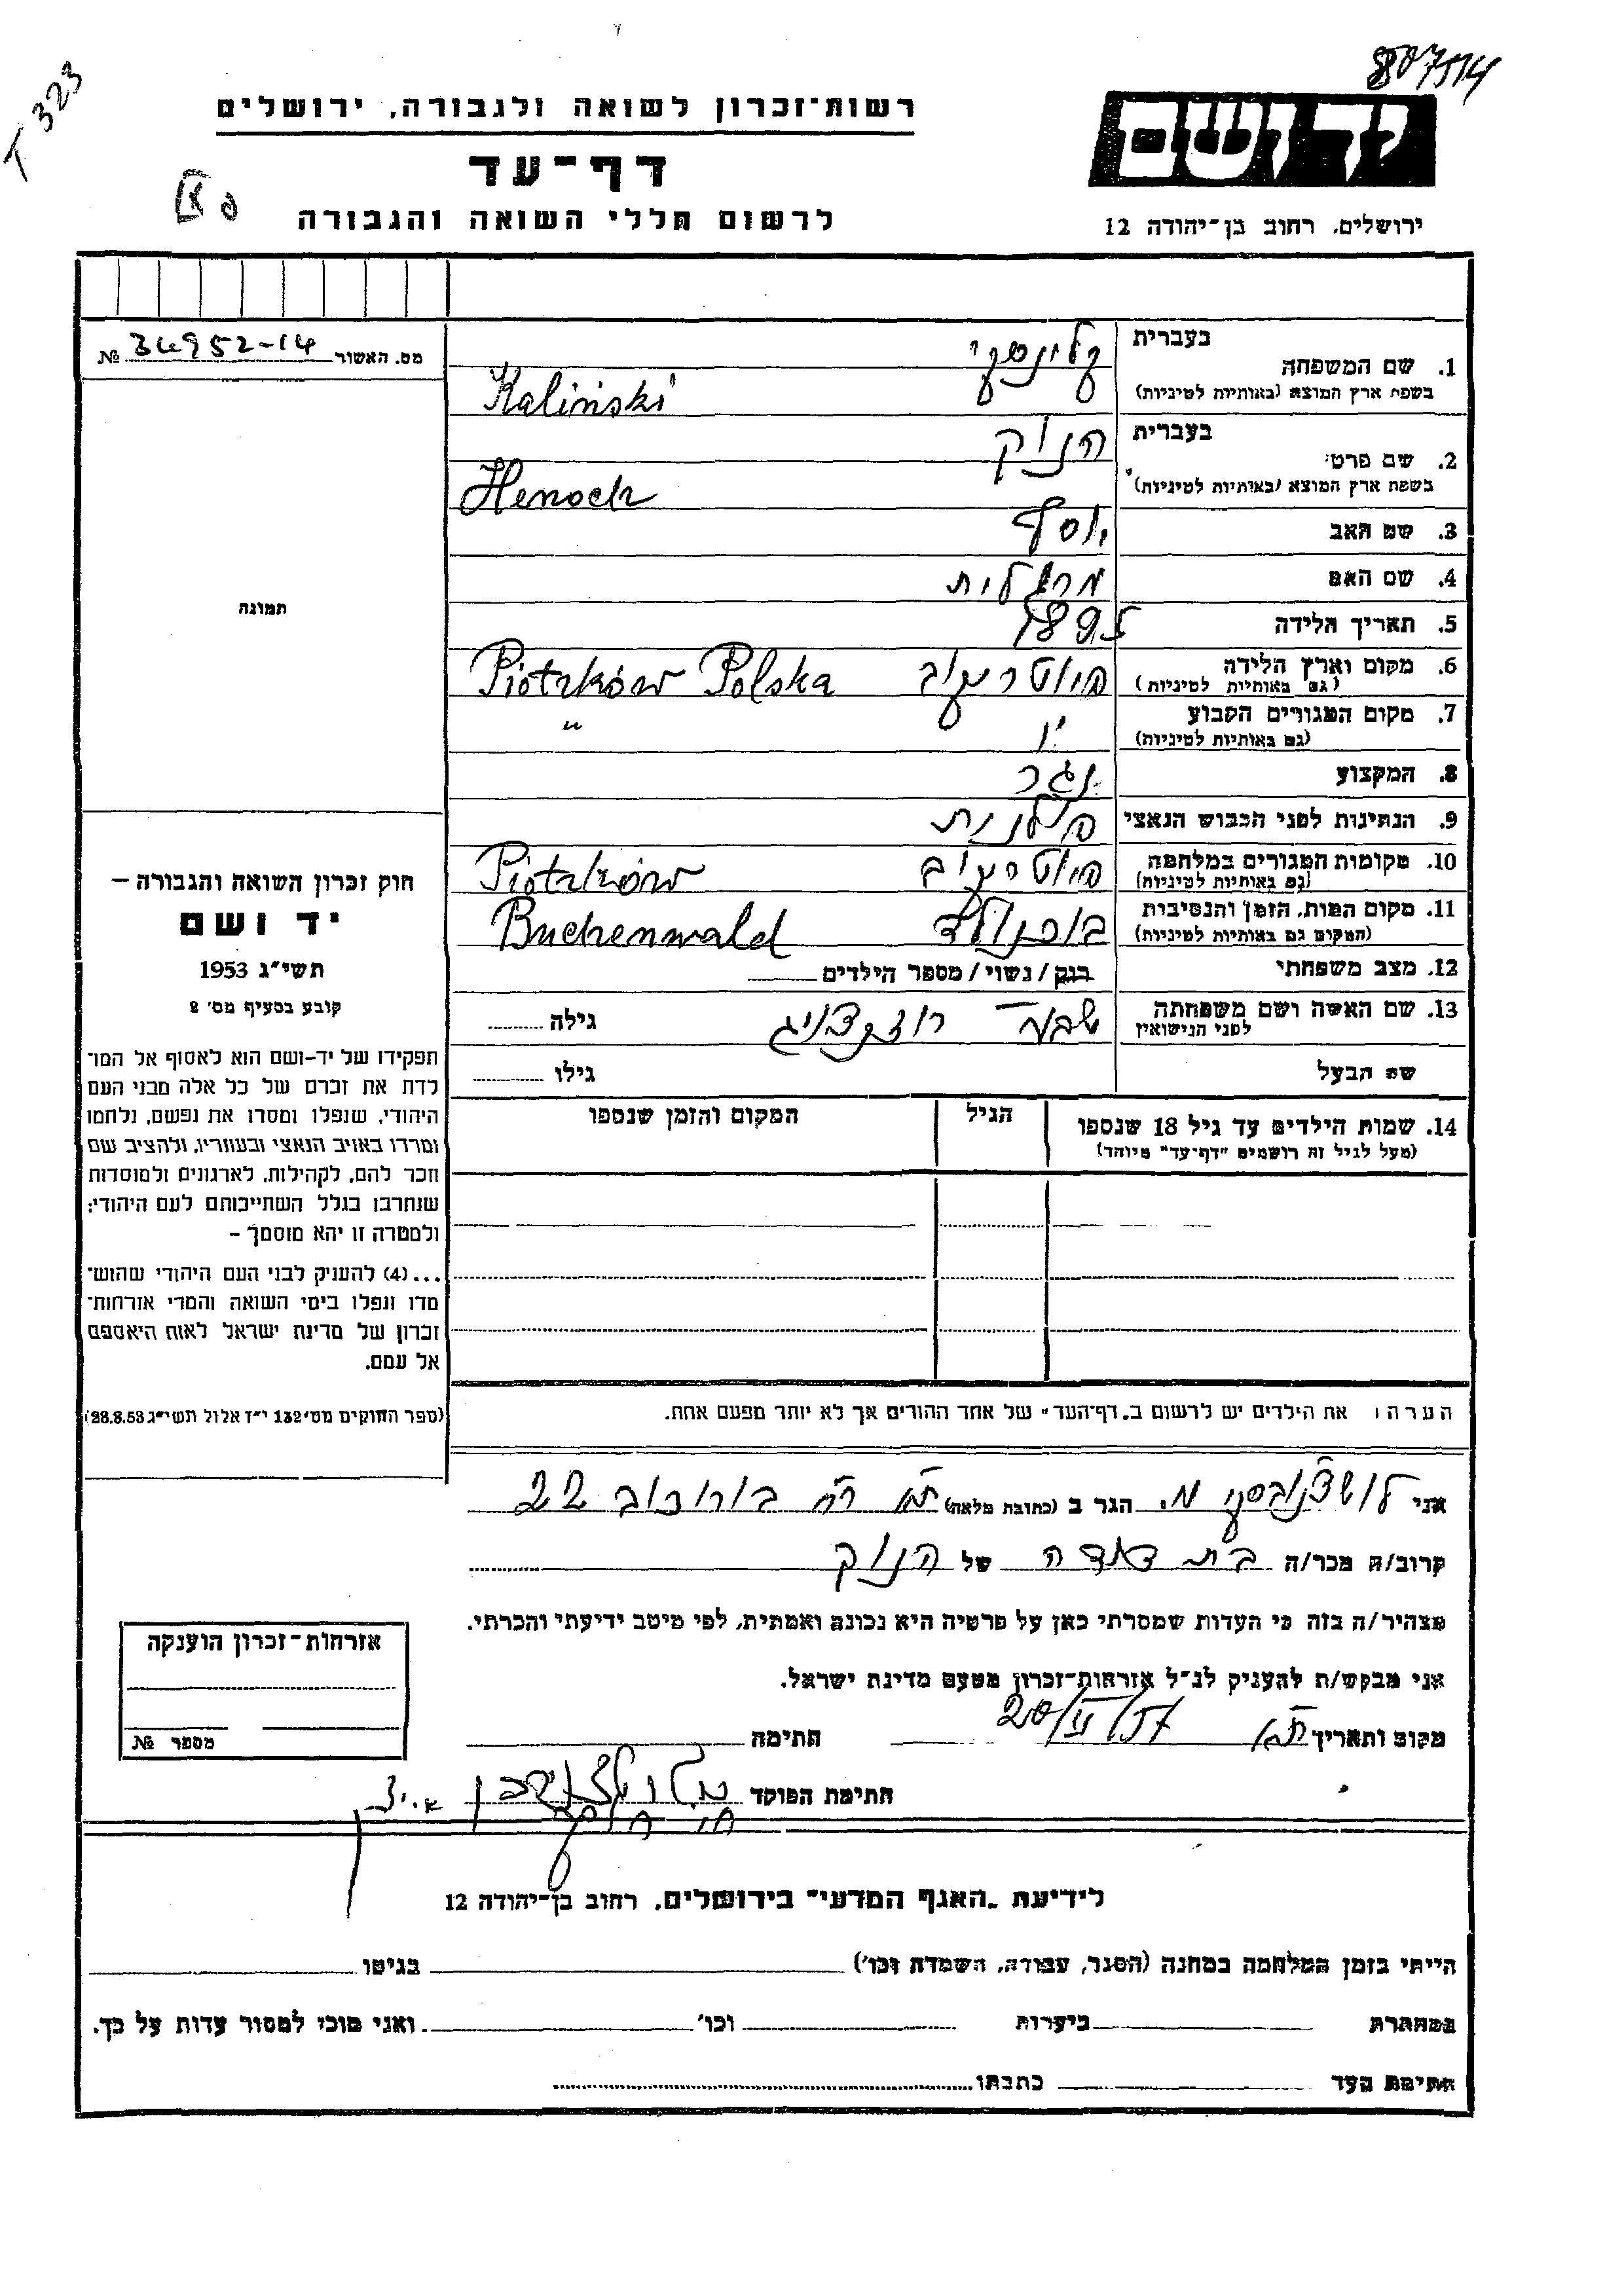 T 323
807514
רשות־זכרון לשואה ולגבורה, ירושלים
יד ושם
דף־עד
לרשום חללי השואה והגבורה
ירושלים, רחוב בן־יהודה 12
מס. האשור 34952-14 №
בעברית קלינסקי
1. שם המשפחה
בשפת ארץ המוצא (באותיות לטיניות) Kaliński
בעברית הנוק
2. שם פרטי
בשפת ארץ המוצא (באותיות לטיניות) Henoch
3. שם האב יוסף
4. שם האם מרגלית
5. תאריך הלידה 1895
6. מקום וארץ הלידה פיוטרקוב Piotrków Polska
(גם באותיות לטיניות)
7. מקום המגורים הקבוע " "
(גם באותיות לטיניות)
8. המקצוע נגר
9. הנתינות לפני הכבוש הנאצי פולנית
10. מקומות המגורים במלחמה פיוטרקוב Piotrków
(גם באותיות לטיניות)
11. מקום המות, הזמן והנסיבות בוכנולד Buchenwald
(המקום גם באותיות לטיניות)
12. מצב משפחתי רווק / נשוי / מספר הילדים
13. שם האשה ושם משפחתה גילה
לפני הנישואין
שם הבעל גילו
14. שמות הילדים עד גיל 18 שנספו הגיל המקום והזמן שנספו
(מעל לגיל זה רושמים "דף־עד" מיוחד)
תמונה
חוק זכרון השואה והגבורה –
יד ושם
תשי״ג 1953
קובע בסעיף מס׳ 2
תפקידו של יד-ושם הוא לאסוף אל המו־
לדת את זכרם של כל אלה מבני העם
היהודי, שנפלו ומסרו את נפשם, נלחמו
ומרדו באויב הנאצי ובעוזריו, ולהציב שם
וזכר להם, לקהילות, לארגונים ולמוסדות
שנחרבו בגלל השתייכותם לעם היהודי;
ולמטרה זו יהא מוסמך –
...(4) להעניק לבני העם היהודי שהוש־
מדו ונפלו בימי השואה והמרי אזרחות־
זכרון של מדינת ישראל לאות היאספם
אל עמם.
(ספר החוקים מס׳ 132 י״ז אלול תשי״ג 28.8.53)
הערה: את הילדים יש לרשום ב„דף־העד" של אחד ההורים אך לא יותר מפעם אחת.
אני מ. הגר ב (כתובת מלאה) ת״א רח׳ בורוכוב 22
קרוב/ה מכר/ה בת דודה של הנוק
מצהיר/ה בזה כי העדות שמסרתי כאן על פרטיה היא נכונה ואמתית, לפי מיטב ידיעתי והכרתי.
אני מבקש/ת להעניק לנ״ל אזרחות־זכרון מטעם מדינת ישראל.
מקום ותאריך ת״א 20/II/57 חתימה
חתימת הפוקד
אזרחות־זכרון הוענקה
מספר №
לידיעת „האגף המדעי" בירושלים, רחוב בן־יהודה 12
הייתי בזמן המלחמה במחנה (הסגר, עבודה, השמדה וכו׳) בגיטו
במחתרת ביערות וכו׳ ואני מוכן למסור עדות על כך.
חתימת העד כתבתו